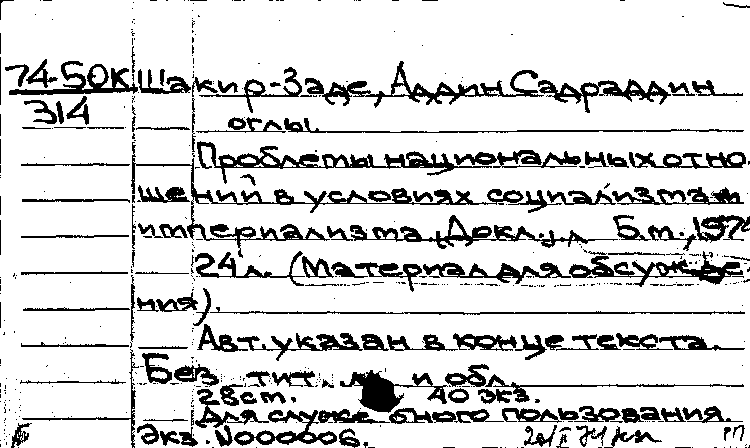 74-50К Шакир-Заде, Аддин Садраддин
314
оглы.
Проблемы национальных отно-
шений в условиях социализма и
империализма. (Докл.). Б.м., 1974
24 л. (Материал для обсужде-
ния).
Авт. указан в конце текста.
Без тит. л. и обл.
28 cm. 40 экз.
Для служебного пользования.
Экз. N000006.
РП